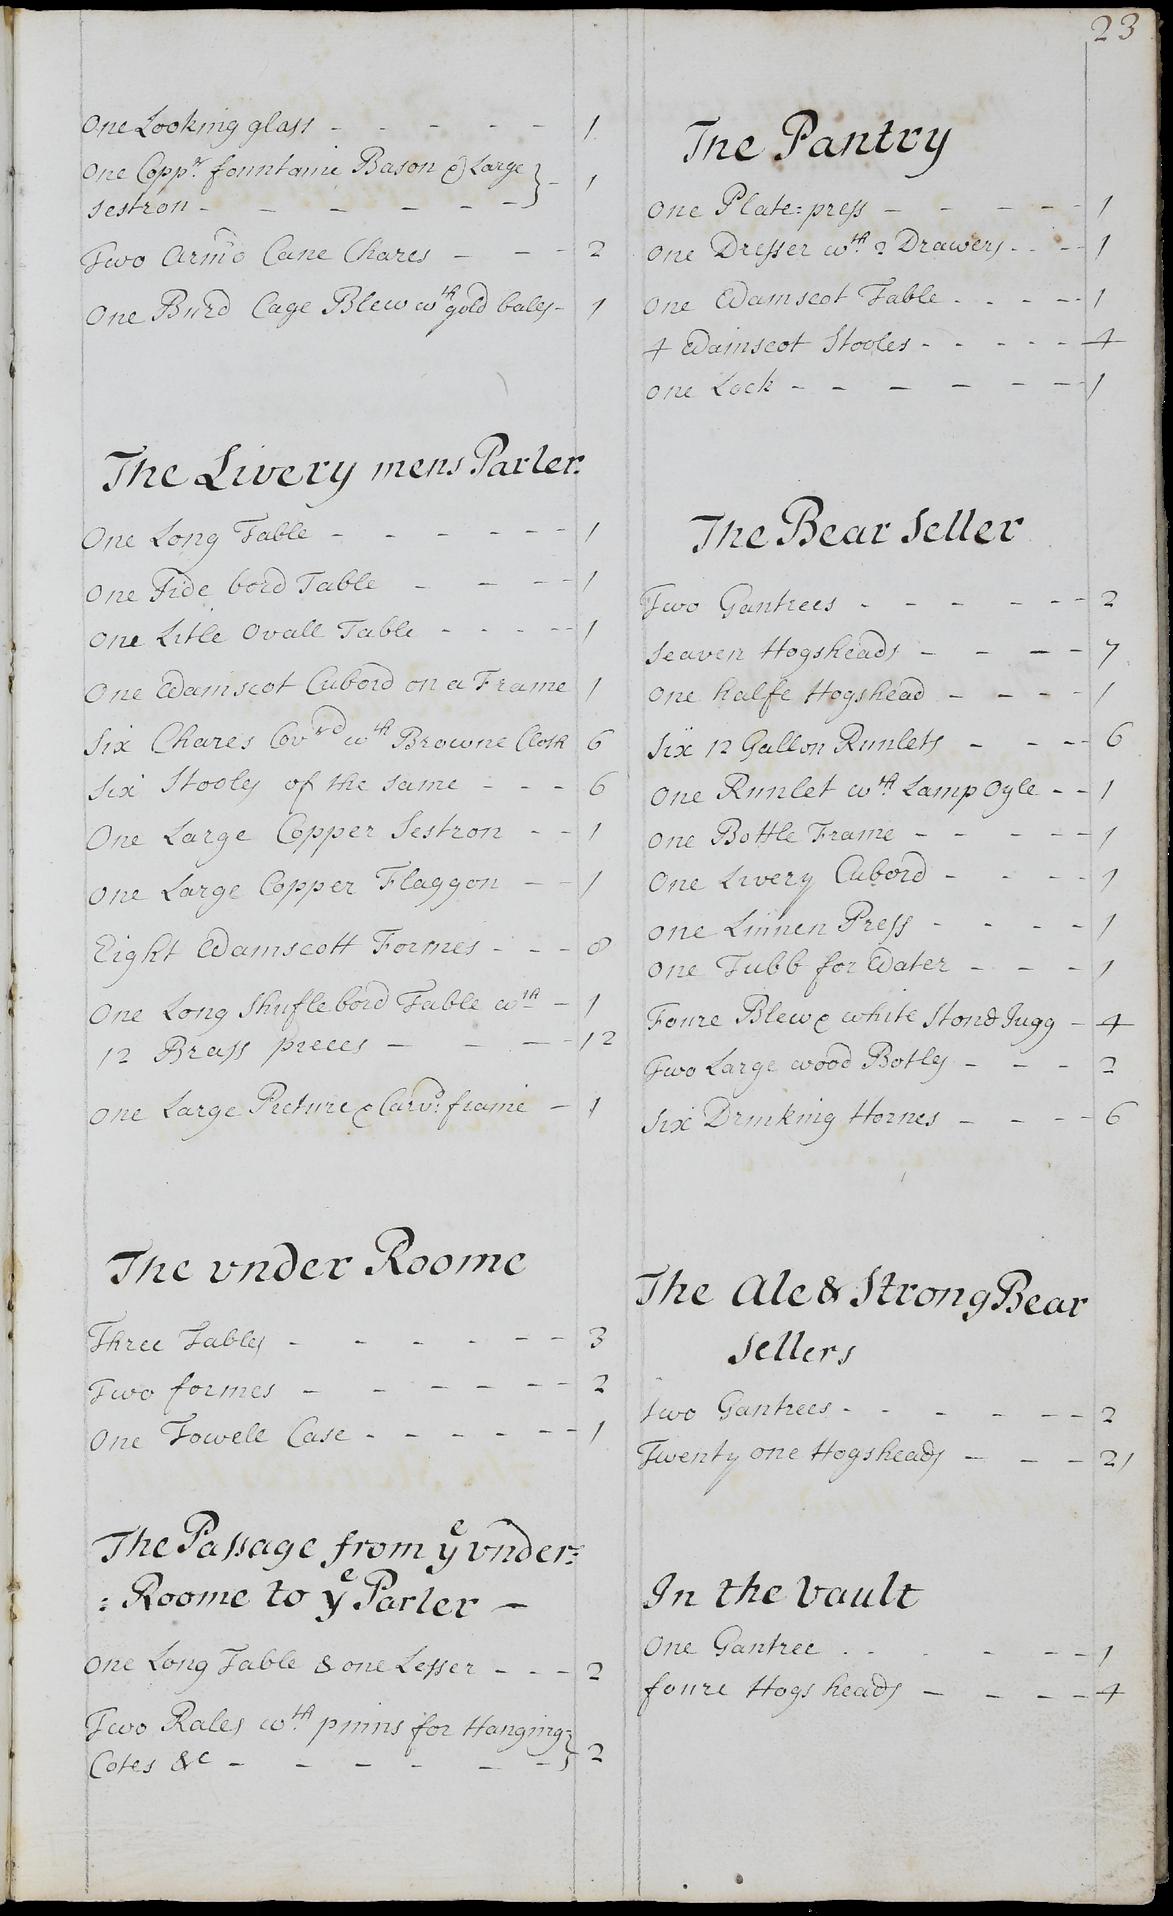 23
One Looking glass - - - - - - 1
One Copp.r fountaine Bason & Large } - 1
Sestron - - - - - - -
Two Arm'd Cane Chares - - - 2
One Burd Cage Blew wth gold bales - 1
The Livery mens Parler.
One Long Table - - - - - - 1
One Side bord Table - - - - 1
One Litle Ovall Table - - - - - 1
One Wainscot Cubord on a Frame 1
Six Chares Covrd wth Browne Cloth 6
Six Stooles of the same - - - 6
One Large Copper Sestron - - 1
One Large Copper Flaggon - - 1
Eight Wainscott Formes - - - 8
One Long Shuflebord Table wth - 1
12 Brass pieces - - - - 12
One Large Picture & Carv'd frame - 1
The vnder Roome
Three Tables - - - - - - - 3
Two formes - - - - - - - 2
One Towell Case - - - - - - - 1
The Passage from ye vnder=
: Roome to ye Parler -
One Long Table & one Lesser - - - 2
Two Rales wth pinns for Hanging }
Cotes &c - - - - - - 2
The Pantry
One Plate=press - - - - - 1
One Dresser wth 2 Drawers - - - - 1
One Wainscot Table - - - - - 1
4 Wainscot Stooles - - - - - 4
One Lock - - - - - - - 1
The Bear Seller
Two Gantrees - - - - - - - 2
Seaven Hogsheads - - - - 7
One halfe Hogshead - - - - 1
Six 12 Gallon Runlets - - - - 6
One Runlet wth Lamp Oyle - - 1
One Bottle Frame - - - - - - 1
One Livery Cubord - - - - - 1
One Linnen Press - - - - 1
One Tubb for Water - - - - 1
Foure Blew & white Stone Jugg - 4
Two Large wood Botles - - - - 2
Six Drinking Hornes - - - - 6
The Ale & Strong Bear
Sellers
Two Gantrees - - - - - - - 2
Twenty one Hogsheads - - - 21
In the Vault
One Gantree - - - - - - - 1
foure Hogs heads - - - - - 4